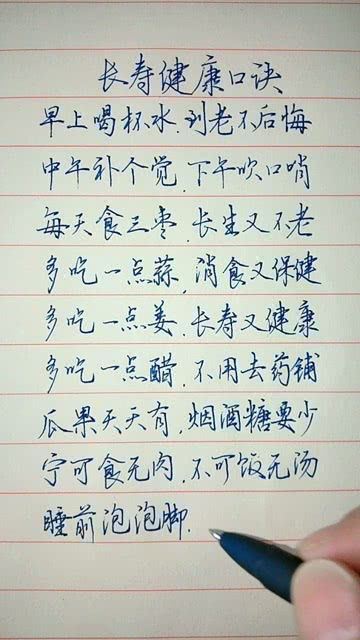 长寿健康口诀
早上喝杯水.到老不后悔
中午补个觉.下午吹口哨
每天食三枣.长生又不老
多吃一点蒜,消食又保健
多吃一点姜.长寿又健康
多吃一点醋.不用去药铺
瓜果天天有.烟酒糖要少
宁可食无肉.不可饭无汤
睡前泡泡脚.